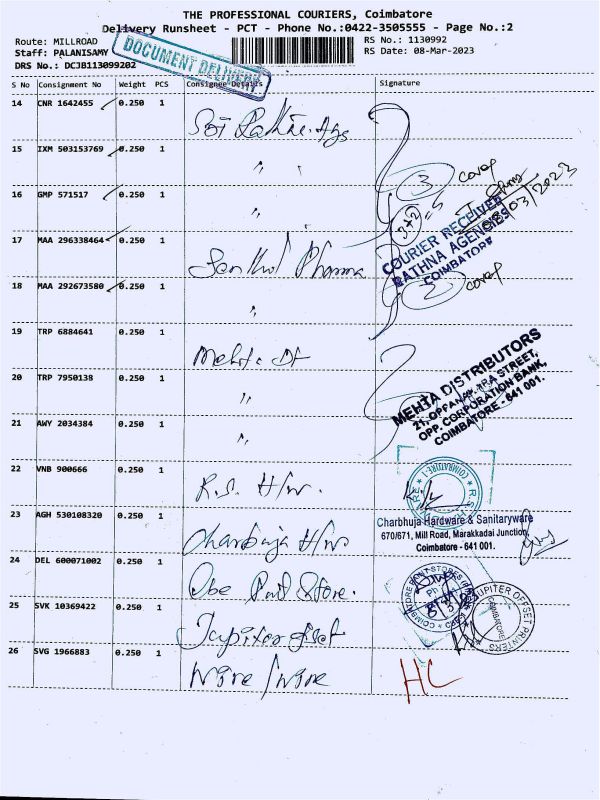 THE PROFESSIONAL COURIERS, Coimbatore
Delivery Runsheet - PCT - Phone No.:0422-3505555 - Page No.:2
Route: MILLROAD
RS No.: 1130992
Staff: PALANISAMY
RS Date: 08-Mar-2023
DRS No.: DCJB113099202
DOCUMENT DELIVERY
S No Consignment No Weight PCS Consignee Details Signature
14 CNR 1642455 0.250 1
15 IXM 503153769 0.250 1 " "
16 GMP 571517 0.250 1 "
3 cover
3+2
08/03/2023
COURIER RECEIVED
RATHNA AGENCIES
COIMBATORE
17 MAA 296338464 0.250 1 Pharma
18 MAA 292673580 0.250 1 "
2 cover
19 TRP 6884641 0.250 1 Mehta Dt
20 TRP 7950138 0.250 1 "
21 AWY 2034384 0.250 1 "
MEHTA DISTRIBUTORS
21, OPPANAKARA STREET,
OPP. CORPORATION BANK,
COIMBATORE - 641 001.
22 VNB 900666 0.250 1 R.S. H/w.
23 AGH 530108320 0.250 1 Charbuja H/w
Charbhuja Hardware & Sanitaryware
670/671, Mill Road, Marakkadai Junction,
Coimbatore - 641 001.
24 DEL 600071002 0.250 1 Obe Paint Store.
25 SVK 10369422 0.250 1 Jupiter
JUPITER OFFSET PRINTERS
COIMBATORE
26 SVG 1966883 0.250 1 Wire / Wire
HC